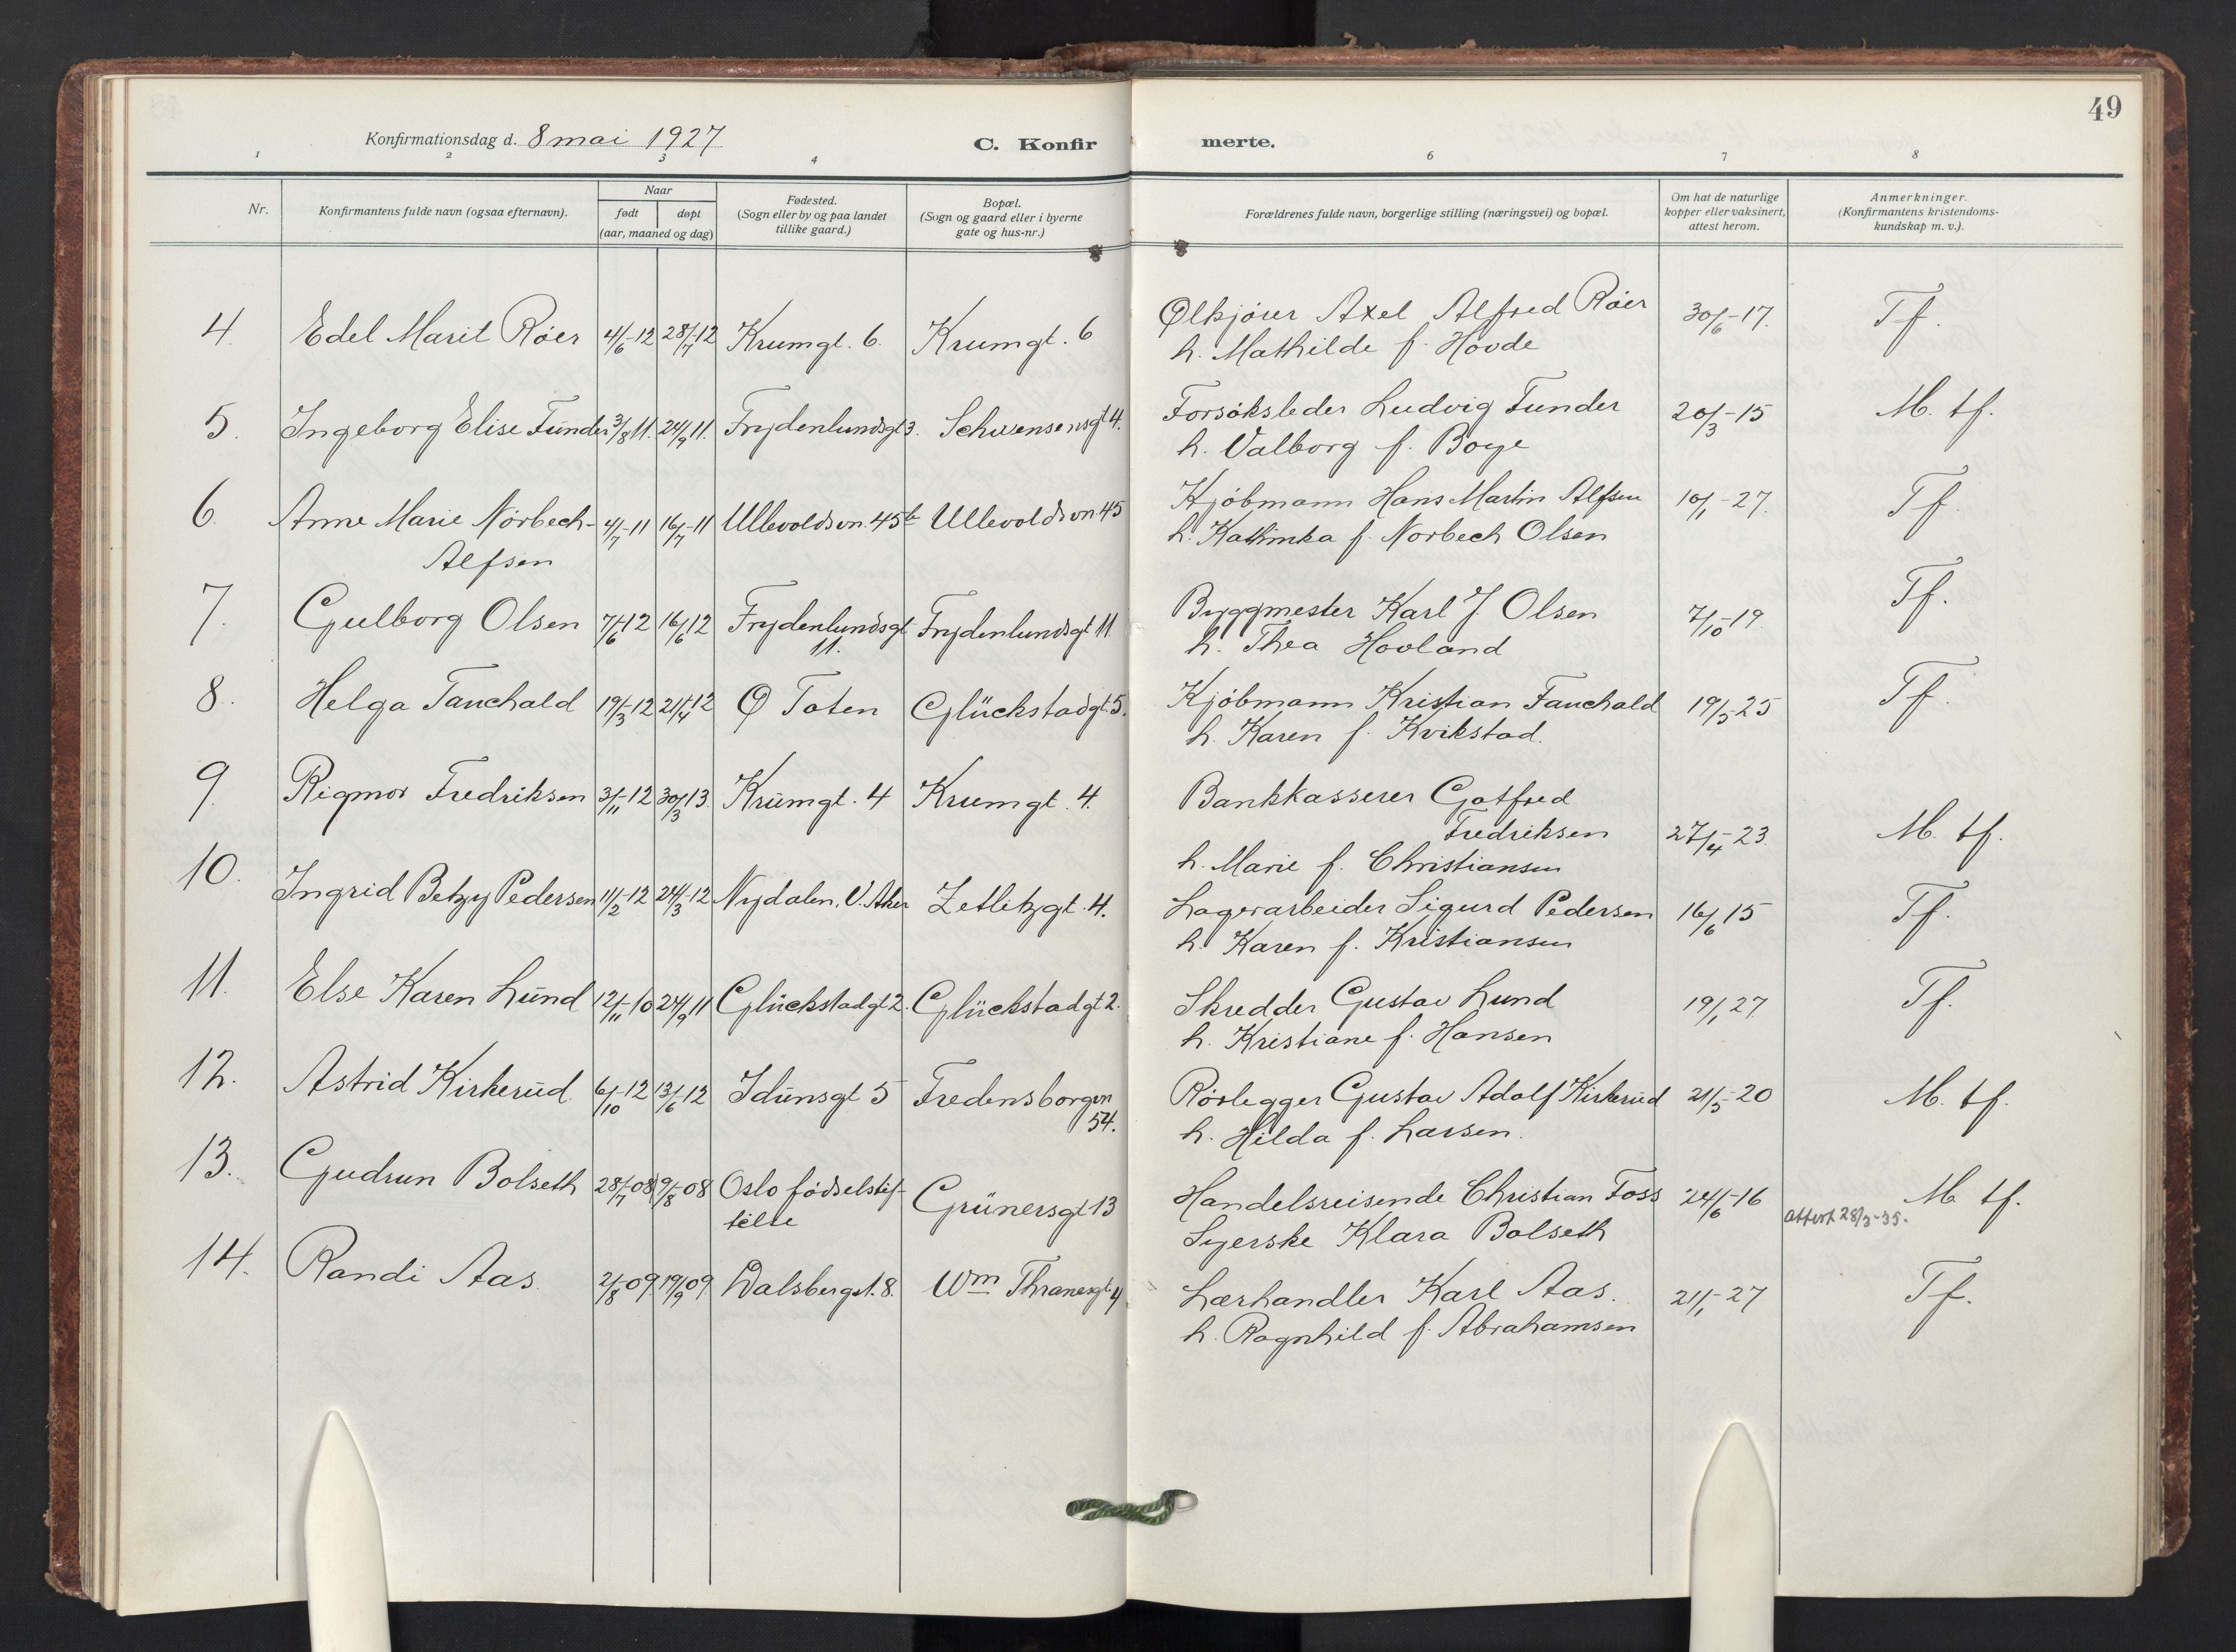 49
Konfirmationsdag d. 8 mai 1927
C. Konfirmerte.
1 2 3 4 6 7 8
Nr.
Konfirmantens fulde navn (ogsaa efternavn).
Naar
født døpt
(aar, maaned og dag)
Fødested.
(Sogn eller by og paa landet
tillike gaard.)
Bopæl.
(Sogn og gaard eller i byerne
gate og hus-nr.)
Forældrenes fulde navn, borgerlige stilling (næringsvei) og bopæl.
Om hat de naturlige
kopper eller vaksinert,
attest herom.
Anmerkninger.
(Konfirmantens kristendoms-
kundskap m. v.).
4. Edel Marit Röer 4/6-12 28/7-12 Krumgt. 6. Krumgt. 6 Ølkjörer Axel Alfred Röer 30/6-17. Tf.
h. Mathilde f. Hovde
5. Ingeborg Elise Funder 3/8 11. 24/9 11. Frydenlundsgt 3. Schwensensgt 4. Forsöksleder Ludvig Funder 20/3-15 M. tf.
h. Valborg f. Boye
6. Anne Marie Nörbech- 4/7-11 16/7-11 Ullevoldsvn. 45b Ullevoldsvn. 45 Kjöbmann Hans Martin Alfsen 10/1-27. Tf.
Alfsen h. Kathinka f. Norbech Olsen
7. Gulborg Olsen 7/6-12 16/6-12 Frydenlundsgt Frydenlundsgt 11 Byggmester Karl J. Olsen 7/10-19 Tf.
11. h. Thea Hovland
8. Helga Fauchald 19/3-12 21/4-12 Ø Toten Glückstadgt. 5. Kjöbmann Kristian Fauchald 19/5-25 Tf.
h. Karen f. Kvikstad.
9. Rigmor Fredriksen 3/11-12 30/3-13. Krumgt. 4 Krumgt. 4. Bankkasserer Gotfred
Fredriksen 27/4-23. M. tf.
h. Marie f. Christiansen
10. Ingrid Betzy Pedersen 11/2-12 24/3-12 Nydalen, V. Aker Zetlitzgt. 4. Lagerarbeider Sigurd Pedersen 16/6 15 Tf.
h. Karen f. Kristiansen
11. Else Karen Lund 12/11-10 24/9 11 Glückstadgt 2. Glückstadgt 2. Skredder Gustav Lund 19/1 27 Tf.
h. Kristiane f. Hansen
12. Astrid Kirkerud 6/10-12 13/6-12 Idunsgt 5 Fredensborgvn Rörlegger Gustav Adolf Kirkerud 21/5-20 M. tf.
54. h. Hilda f. Larsen.
13. Gudrun Bolseth 28/7-08 9/8-08 Oslo födselstif- Grünersgt 13 Handelsreisende Christian Foss 24/6-16 M. tf.
telse Syerske Klara Bolseth attest 28/3-35.
14. Randi Aas. 2/8-09 19/9 09. Dalsbergst. 8. Wm Thranesgt 4 Lærhandler Karl Aas. 21/1-27 Tf.
h. Ragnhild f. Abrahamsen